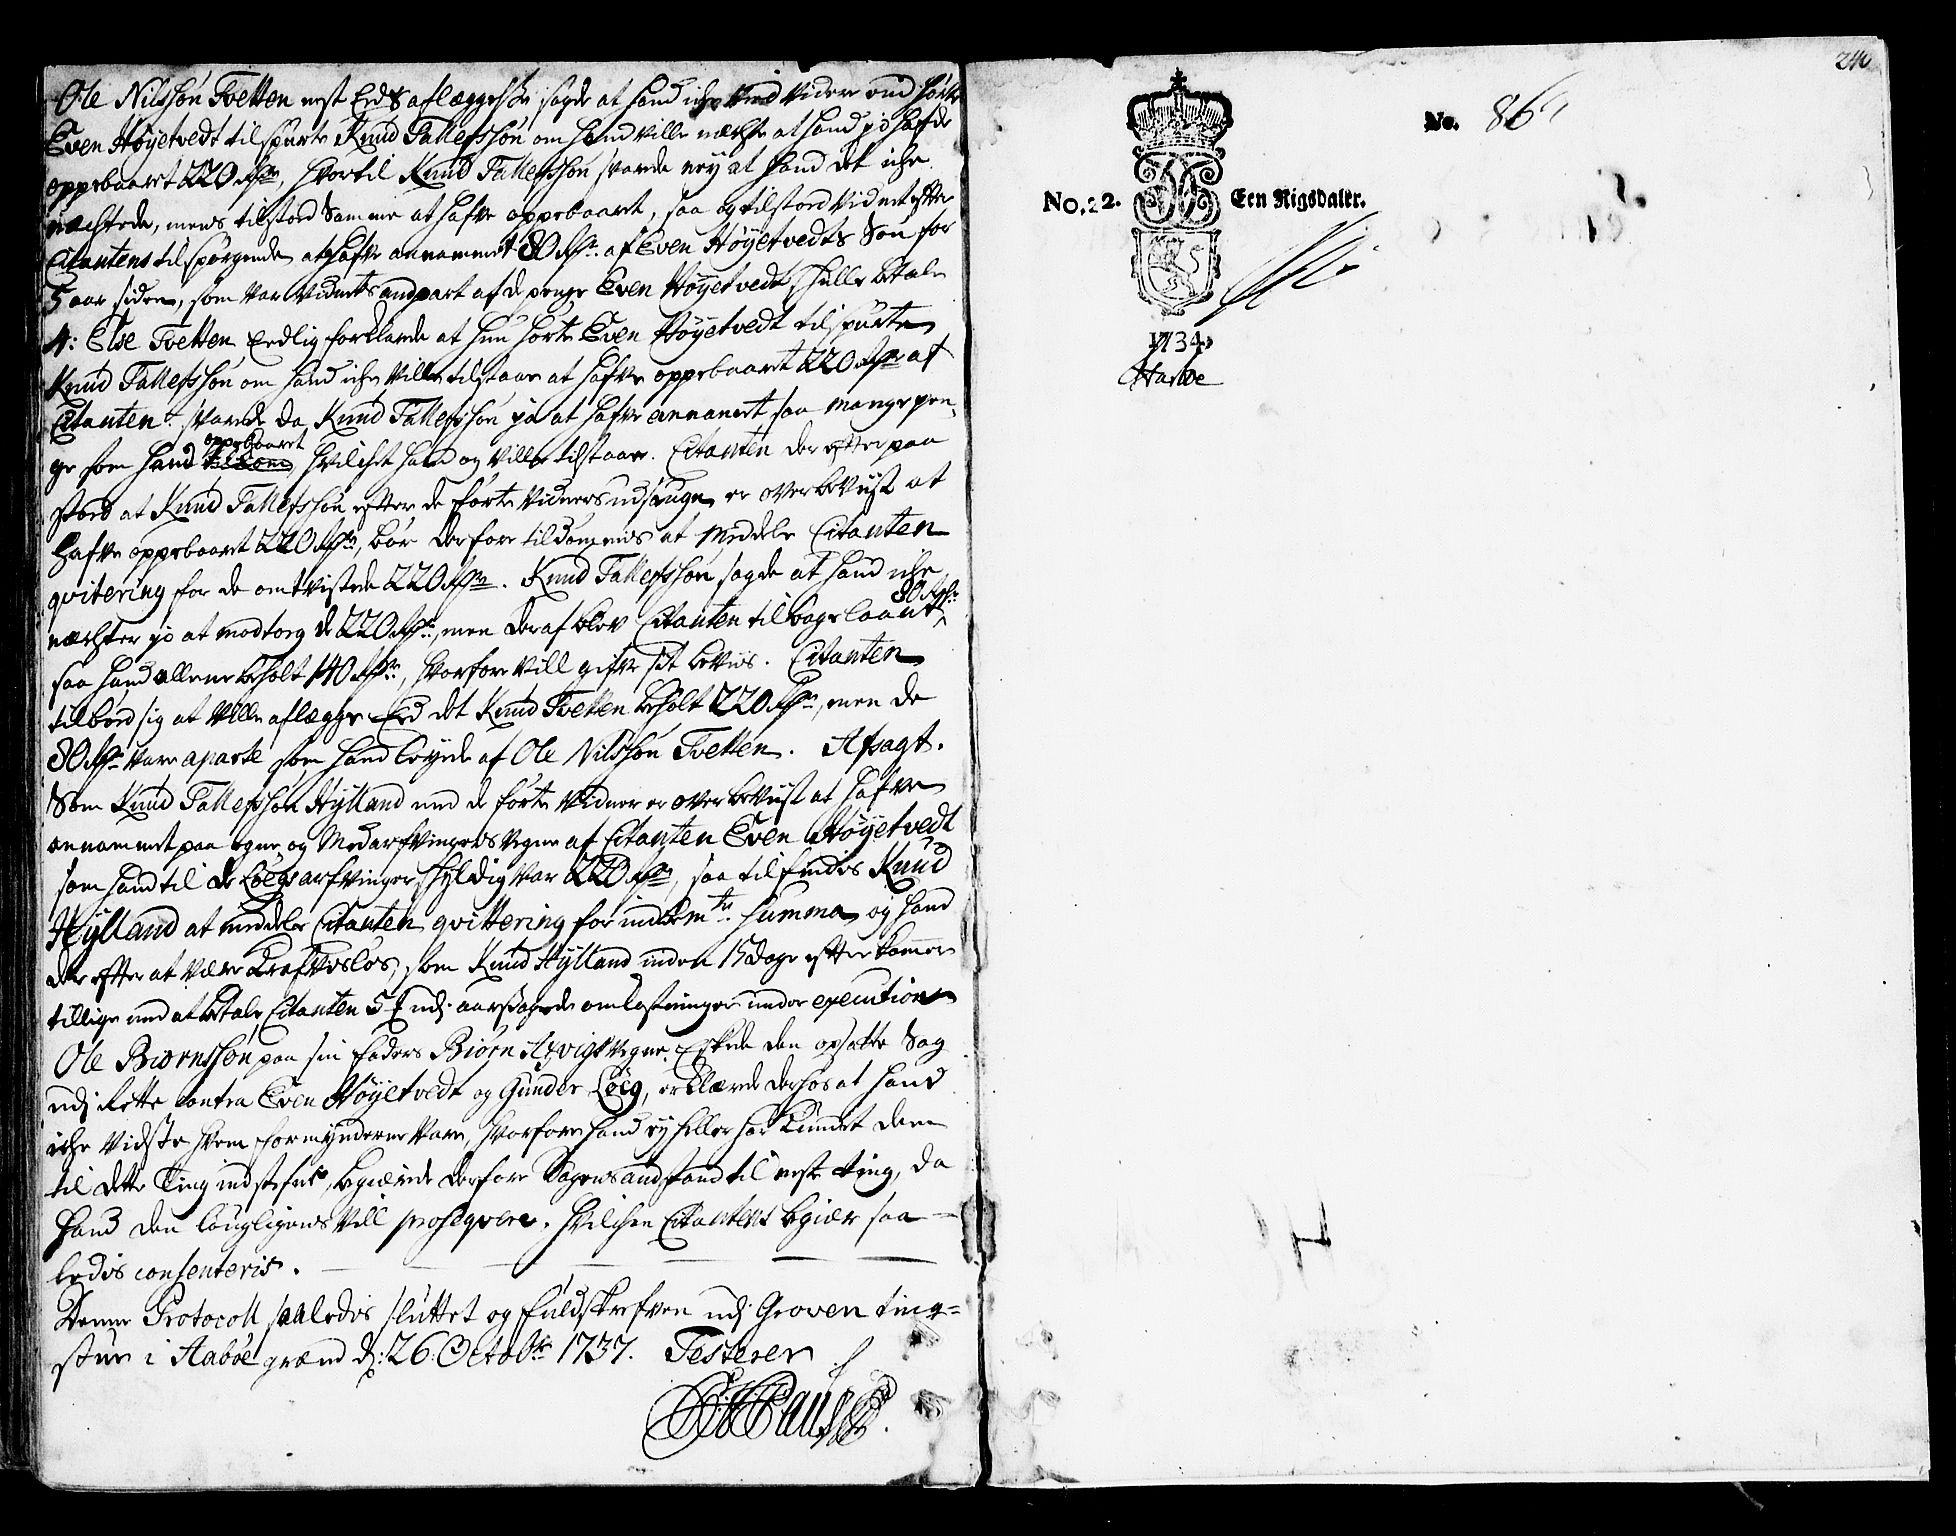 Ole Nilssøn Tvetten nest Eeds aflæggelse sagde at hand iche veed videre end hørte
Even Høyetvedt tilspurte Knud Tallefssøn om hand ville nægte at hand jo hafde
oppebaaret 220 Rdr, hvortil Knud Tallefssøn svarde ney at hand det iche
nægtede, mens tilstoed samme at hafve oppebaaret, saa og tilstoed vidnet efter
Citantens tilspørgende at hafve annammet 80 Rdr. af Even Høyetvedts Søn for
5 aar siden, som var vidnets andpart af de penge Even Høyetvedt skulle betale
4: Else Tvetten Eedlig forklarede at hun hørte Even Høyetvedt tilspurte
Knud Tallefssøn om hand iche ville tilstaae at hafve oppebaaret 220 Rdr af
Citanten. svarede da Knud Tallefssøn ja at hafve annamet saa mange pen-
ge som hand oppebaaret, hvilchet hand og ville tilstaae. Citanten der efter paa
stoed at Knud Tallefssøn efter de førte vidners udsiugn er overbeviist at
hafve oppebaaret 220 Rdr, bør derfore tildømmis at meddele Citanten
qvitering for de omtvistede 220 Rdr. Knud Tallefssøn sagde at hand iche
nægter jo at modtog de 220 Rdr, men deraf blev Citanten tilbage laant 80 Rdr
saa hand allene beholt 140 Rdr, hvorfore vill gifve sit beviis. Citanten
tilbød sig at ville aflægge Eed det Knud Tvetten beholt 220 Rdr, men de
80 Rdr vare aparte som hand lognede af Ole Nilssøn Tvetten. Afsagt.
Som Knud Tallefssøn Hylland med de førte vidner er overbeviist at hafve
annammet paa egne og Medarfvingers vegne af Citanten Even Høyetvedt
som hand til de Løegs arfvinger skyldig var 220 Rdr, saa tilfindis Knud
Hylland at meddele Citanten qvittering for indbemte summa og hand
der efter at være krafvesløs, som Knud Hylland inden 15 dage efterkommer
tillige med at betale Citanten 5 udj aarsagede omkostninger under execution
Ole Biørnssøn paa sin faders Biørn vegne Eskede den opsatte Sag
udj Rette contra Even Høyetvedt og Gunder Løeg, erklærede derhos at hand
iche vidste hvem formynderne vare, hvorfore hand ey heller har kundet dem
til dette Ting indstefne, begiærede derfore Sagens andstand til neste ting, da
hand den lougligens vill prosequere. Hvilchen Citantens begiær saa-
ledis consenteris.
Denne Protocoll saaledis sluttet og fuldskrefven udj Groven ting-
stue i Aabøe grænd d: 26 Octobr 1737. Testerer
240
No. 86
No. 22. Een Rigsdaler.
1734.